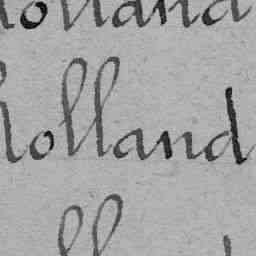 holland
holland